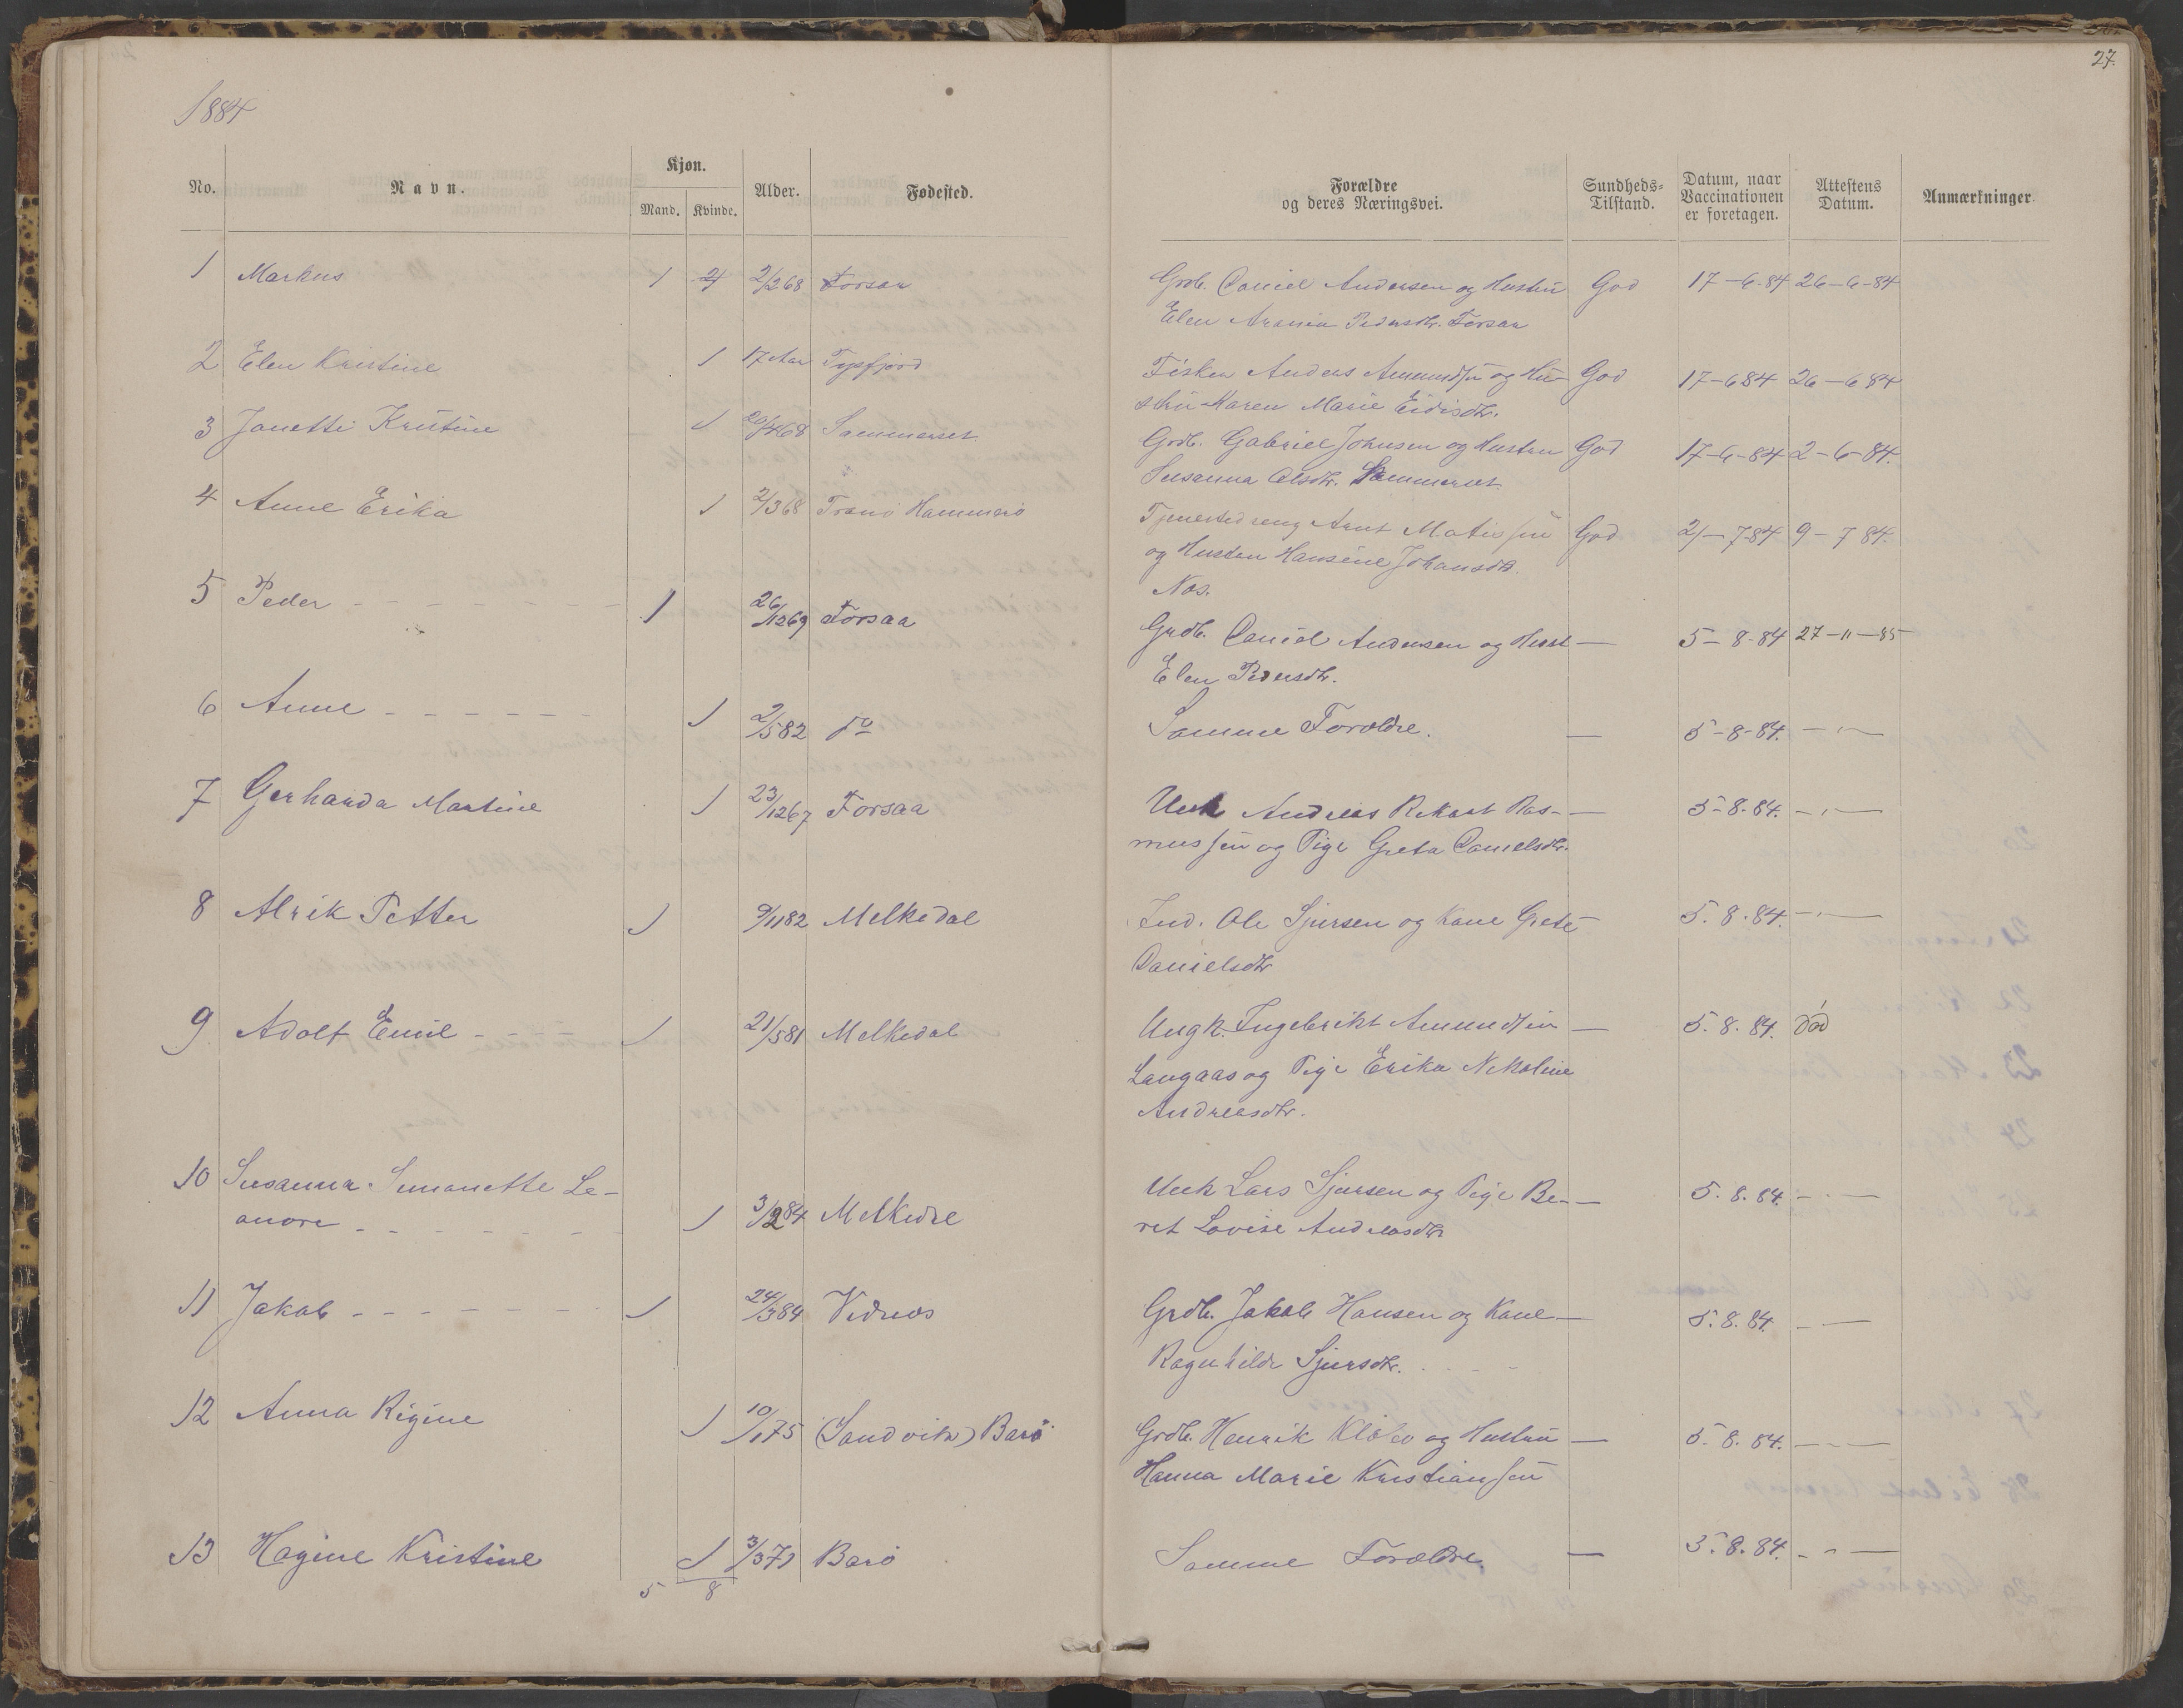 27.
1884
No. Navn. Kjøn. Alder. Fødested. Forældre og deres Næringsvei. Sundheds-Tilstand. Datum, naar Vaccinationen er foretagen. Attestens Datum. Anmærkninger.
Mand. Kvinde.
1 Markus 1 2/2 68 Forsaa Grdb. Daniel Andersen og Hustru God 17-6-84 26-6-84
Elen Pedersdtr. Forsaa
2 Elen Kristine 1 17 Aar Tysfjord Fisker Anders Amundsen og Hu- God 17-6 84 26-6 84
stru Karen Marie
3 Janette Kristine 1 20/4 68 Sommerset Grdb. Gabriel Johnsen og Hustru God 17-6-84 2-6-84.
Susanna Olsdtr. Sommerset
4 Anne Erika 1 2/3 68 Tranö Hammerö Tjenestedreng Arnt Matissen God 2/-7-84 9-7 84.
og Hustru Hansine Johansdtr.
Nos.
5 Peder - - - - - - - 1 26/12 69 Forsaa Grdb. Daniel Andersen og Hust — 5-8-84 27-11-85
Elen Pedersdtr.
6 Anne - - - - - - 1 2/5 82 do Samme Foroldre. — 5-8-84. — " —
7 Gerharda Martine 1 23/12 67 Forsaa Unk Andreas Rikart Ras- — 5-8-84. — " —
mussen og Pige Greta Danielsdtr.
8 Alrik Petter 1 9/11 82 Melkedal Ind. Ole Sjursen og Kone Grete — 5.8.84. — " —
Danielsdtr
9 Adolf Emil - - - - 1 21/5 81 Melkedal Ungk. Ingebrikt Amundsen — 5.8.84. död
Langaas og Pige Erika Nikoline
Andreasdtr.
10 Susanna Simonette Le-
anore - - - - - - - 1 3/2 84 Melkedel Unk Lars Sjursen og Pige Be- — 5.8.84. — " —
ret Lovise Andreasdtr
11 Jakob - - - - - - - 1 24/3 84 Vidnes Grdb. Jakob Hansen og Kone — 5.8.84 — " —
Ragnhilde Sjursdtr. - - - -
12 Anna Rigine 1 10/1 75 (Sandvik) Barö Grdb. Henrik og Hustru — 5.8.84. — " —
Hanna Marie Kristiansen
13 Hagine Kristine 1 3/3 Barö Samme Foroldre. — 5.8.84. — " —
5 8